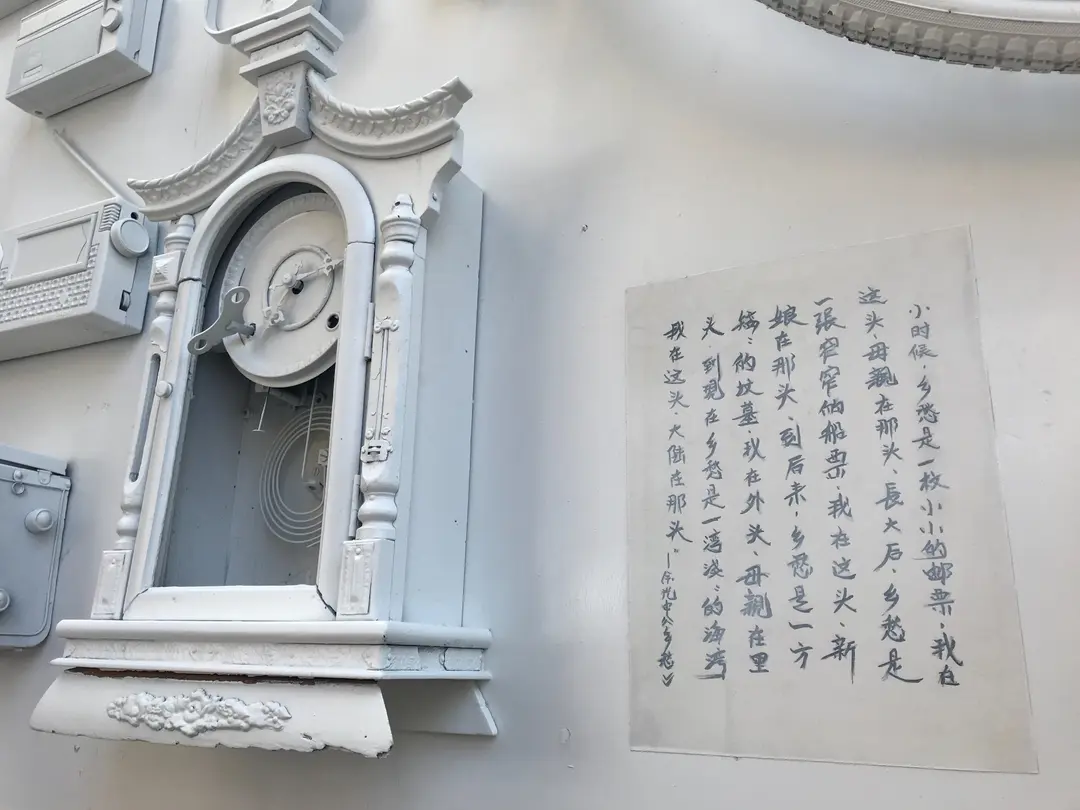 小时候，乡愁是一枚小小的邮票，我在
这头、母親在那头、長大后，乡愁是
一張窄窄的船票，我在这头、新
娘在那头、到后来，乡愁是一方
矮〻的坟墓，我在外头、母親在里
头 到現在乡愁是一湾浅〻的海湾
我在这头，大陆在那头。—余光中《乡愁》